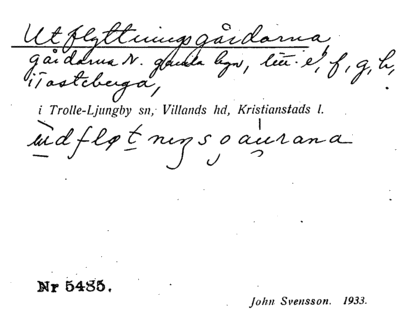 Utflyttningsgårdarna,
gårdarna N. gamla byn, litt. e, f, g, h,
i Tosteberga,
i Trolle-Ljungby sn, Villands hd, Kristianstads l.
Nr 5485.
John Svensson. 1933.